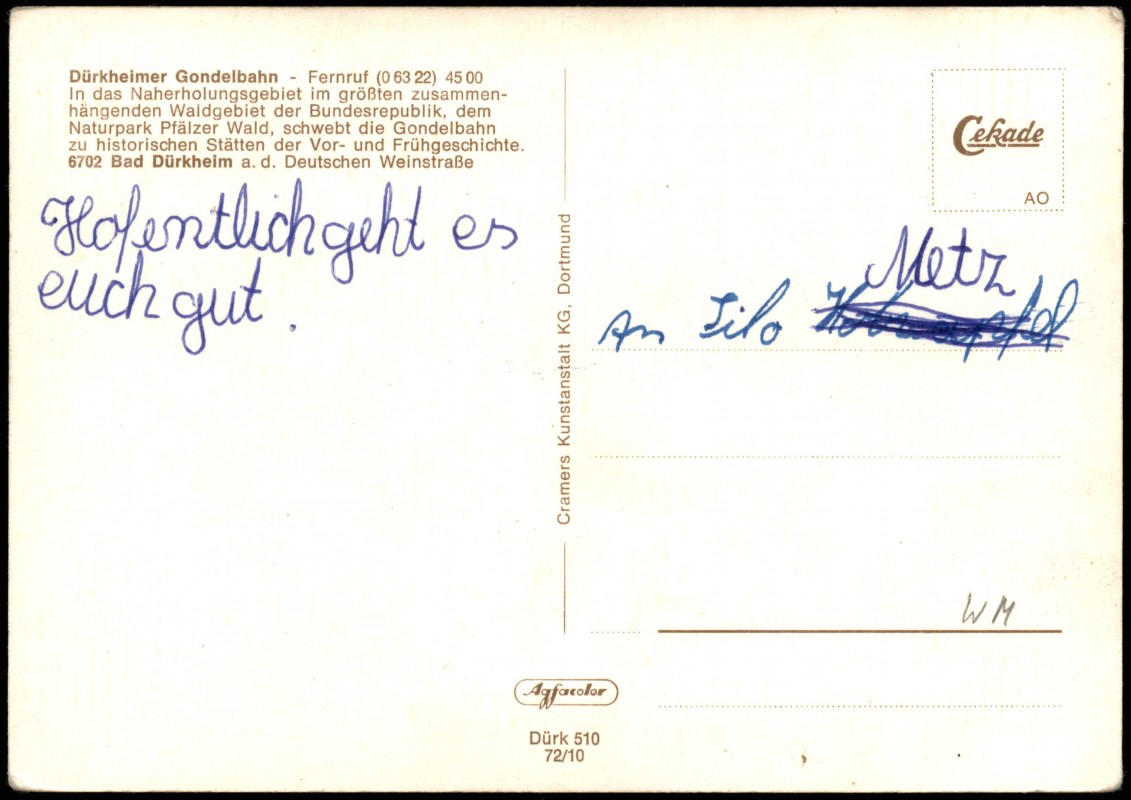 Dürkheimer Gondelbahn - Fernruf (0 63 22) 45 00
In das Naherholungsgebiet im größten zusammen-
hängenden Waldgebiet der Bundesrepublik, dem
Naturpark Pfälzer Wald, schwebt die Gondelbahn
zu historischen Stätten der Vor- und Frühgeschichte.
6702 Bad Dürkheim a. d. Deutschen Weinstraße
Hofentlich geht es
euch gut.
Cramers Kunstanstalt KG, Dortmund
Cekade
AO
Metz
An Filo
WM
Agfacolor
Dürk 510
72/10